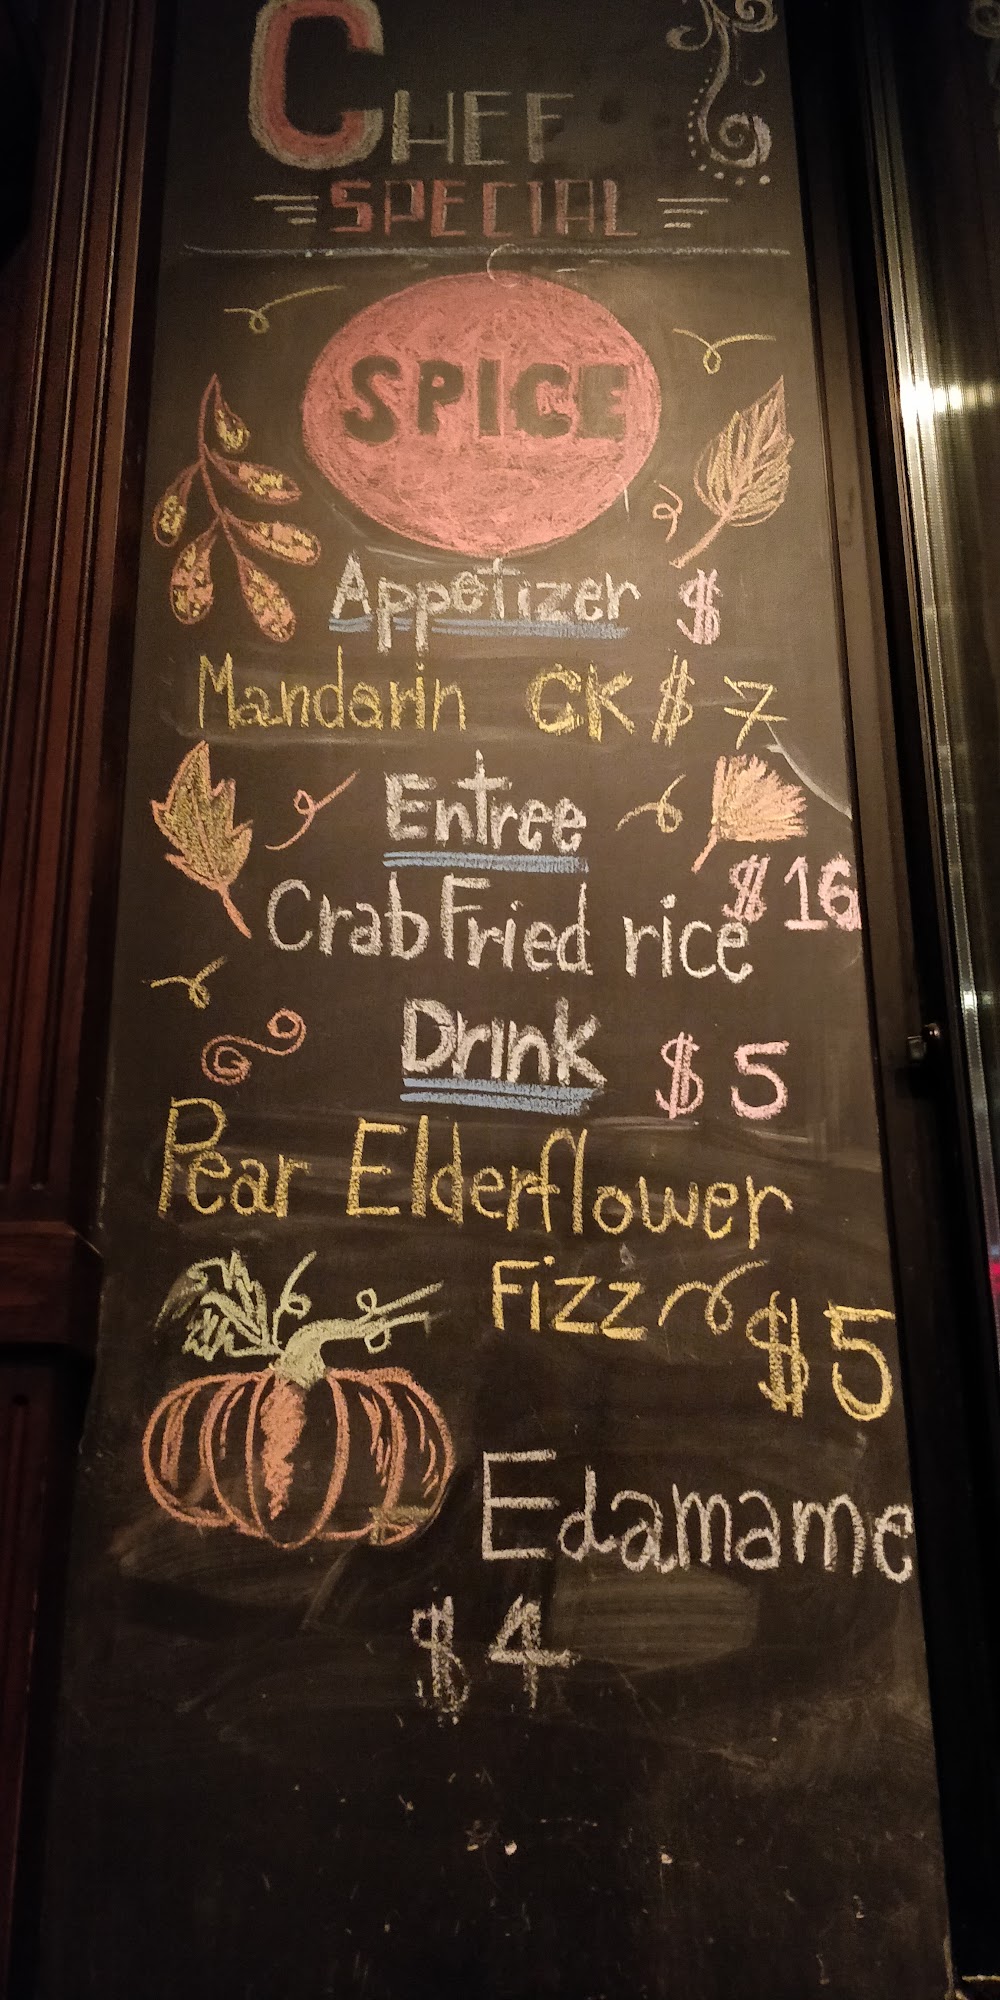 CHEF
SPECIAL
SPICE
Appetizer $
Mandarin CK $ 7
Entree
$ 16
Crab Fried rice
Drink $ 5
Pear Elderflower
Fizz $ 5
Edamame
$ 4